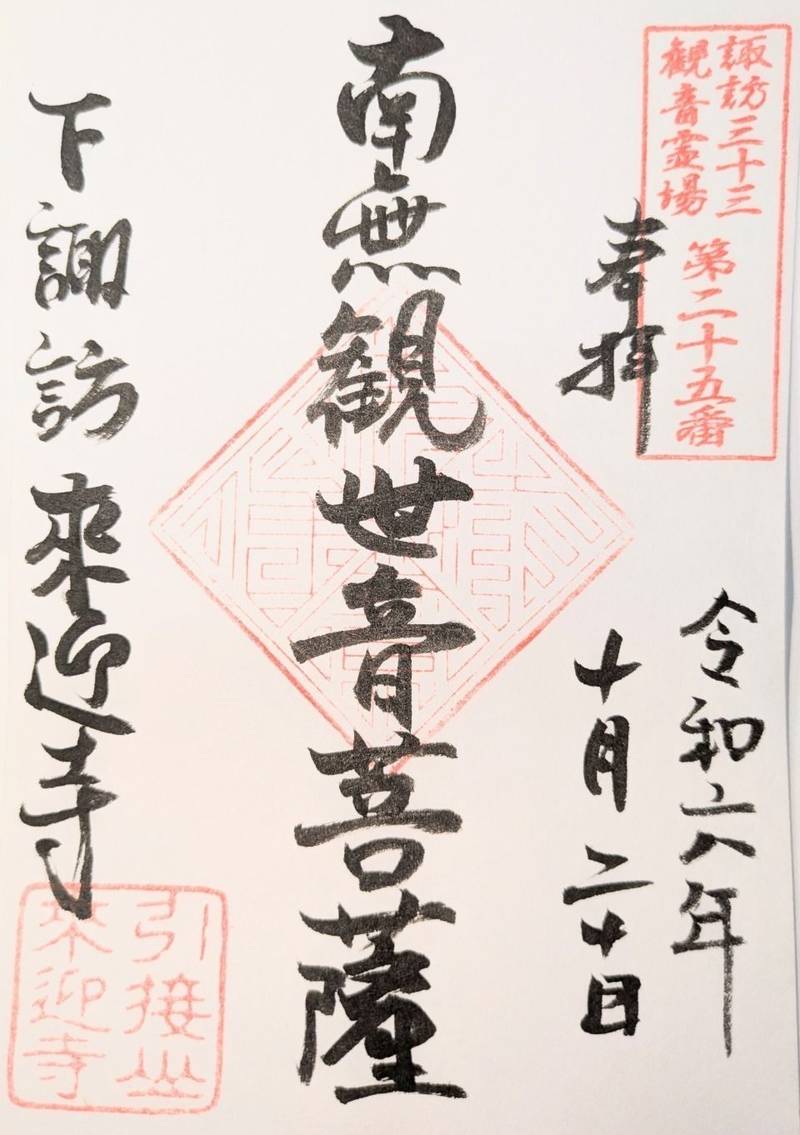 諏訪三十三
観音霊場
第二十五番
奉拝
令和六年
十月二十日
南無観世音菩薩
下諏訪 來迎寺
引接山
來迎寺